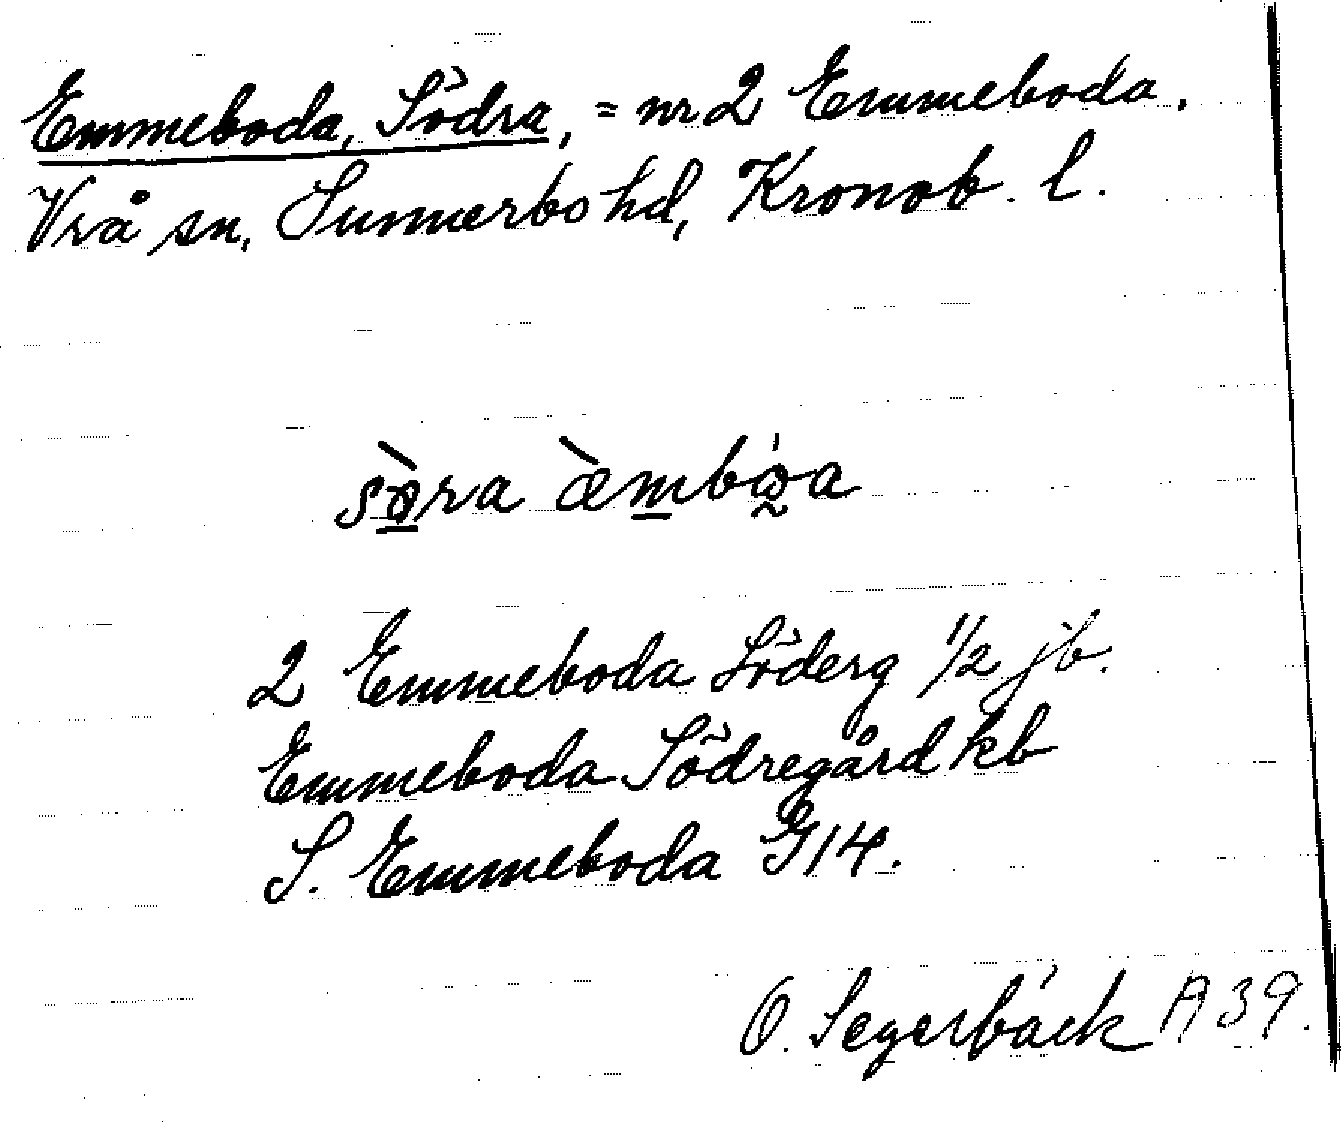 Emmeboda, Södra, = nr 2 Emmeboda.
Vrå sn, Sunnerbo hd, Kronob. l.
sø̀ra æ̀mbǿa
2 Emmeboda Söderg 1/2 jb.
Emmeboda Södregård kb
S. Emmeboda G14.
O. Segerbäck A39.